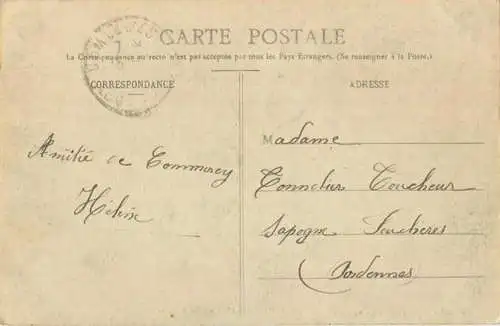 CARTE POSTALE
La Correspondance au recto n'est pas acceptée par tous les Pays Étrangers. (Se renseigner à la Poste.)
CORRESPONDANCE
ADRESSE
Amitié de Commercy
Madame
Tonnelier Toucheur
Sapogne Feuchères
(Ardennes)